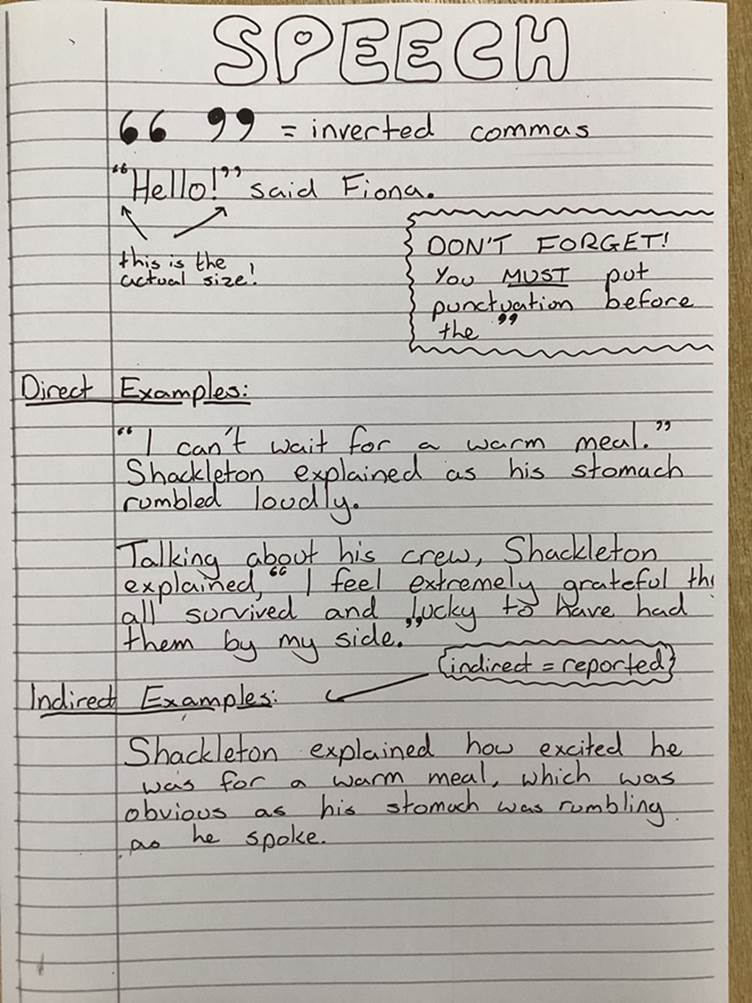 SPEECH
“ ” = inverted commas
“Hello!” said Fiona.
this is the
actual size!
DON'T FORGET!
You MUST put
punctuation before
the ”
Direct Examples:
“I can't wait for a warm meal.”
Shackleton explained as his stomach
rumbled loudly.
Talking about his crew, Shackleton
explained, “I feel extremely grateful
all survived and lucky to have had
them by my side.”
(indirect = reported)
Indirect Examples:
Shackleton explained how excited he
was for a warm meal, which was
obvious as his stomach was rumbling
as he spoke.